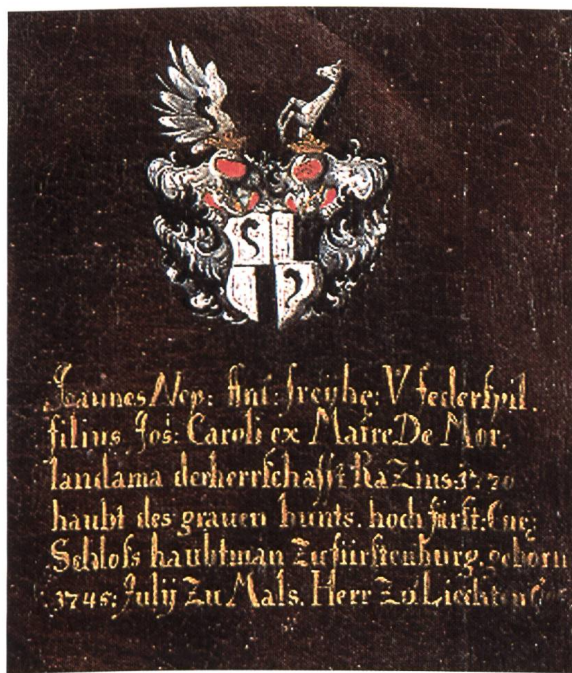 Joannes Nep: Ant: freyhe: V federspil.
filius Jos: Caroli ex Matre De Mor,
landama derherrschafft RaZins 1770
haubt des grauen bunts. hoch fürst: Cue:
Schloss haubtman Zu fürstenburg. geborn
1745: Julij Zu Mals. Herr Zu Liechten